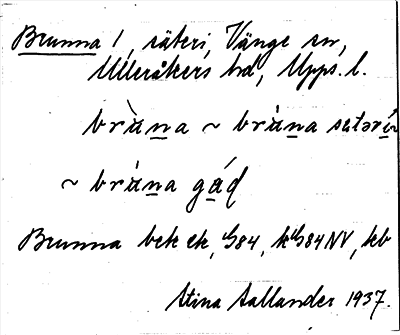 Brunna 1, säteri, Vänge sn,
Ulleråkers hd, Upps. l.
brùna ~ brùna sætərí
~ brùna gáḍ
Brunna bek ek, G84, kG84NV, kb
Stina Sallander 1937.